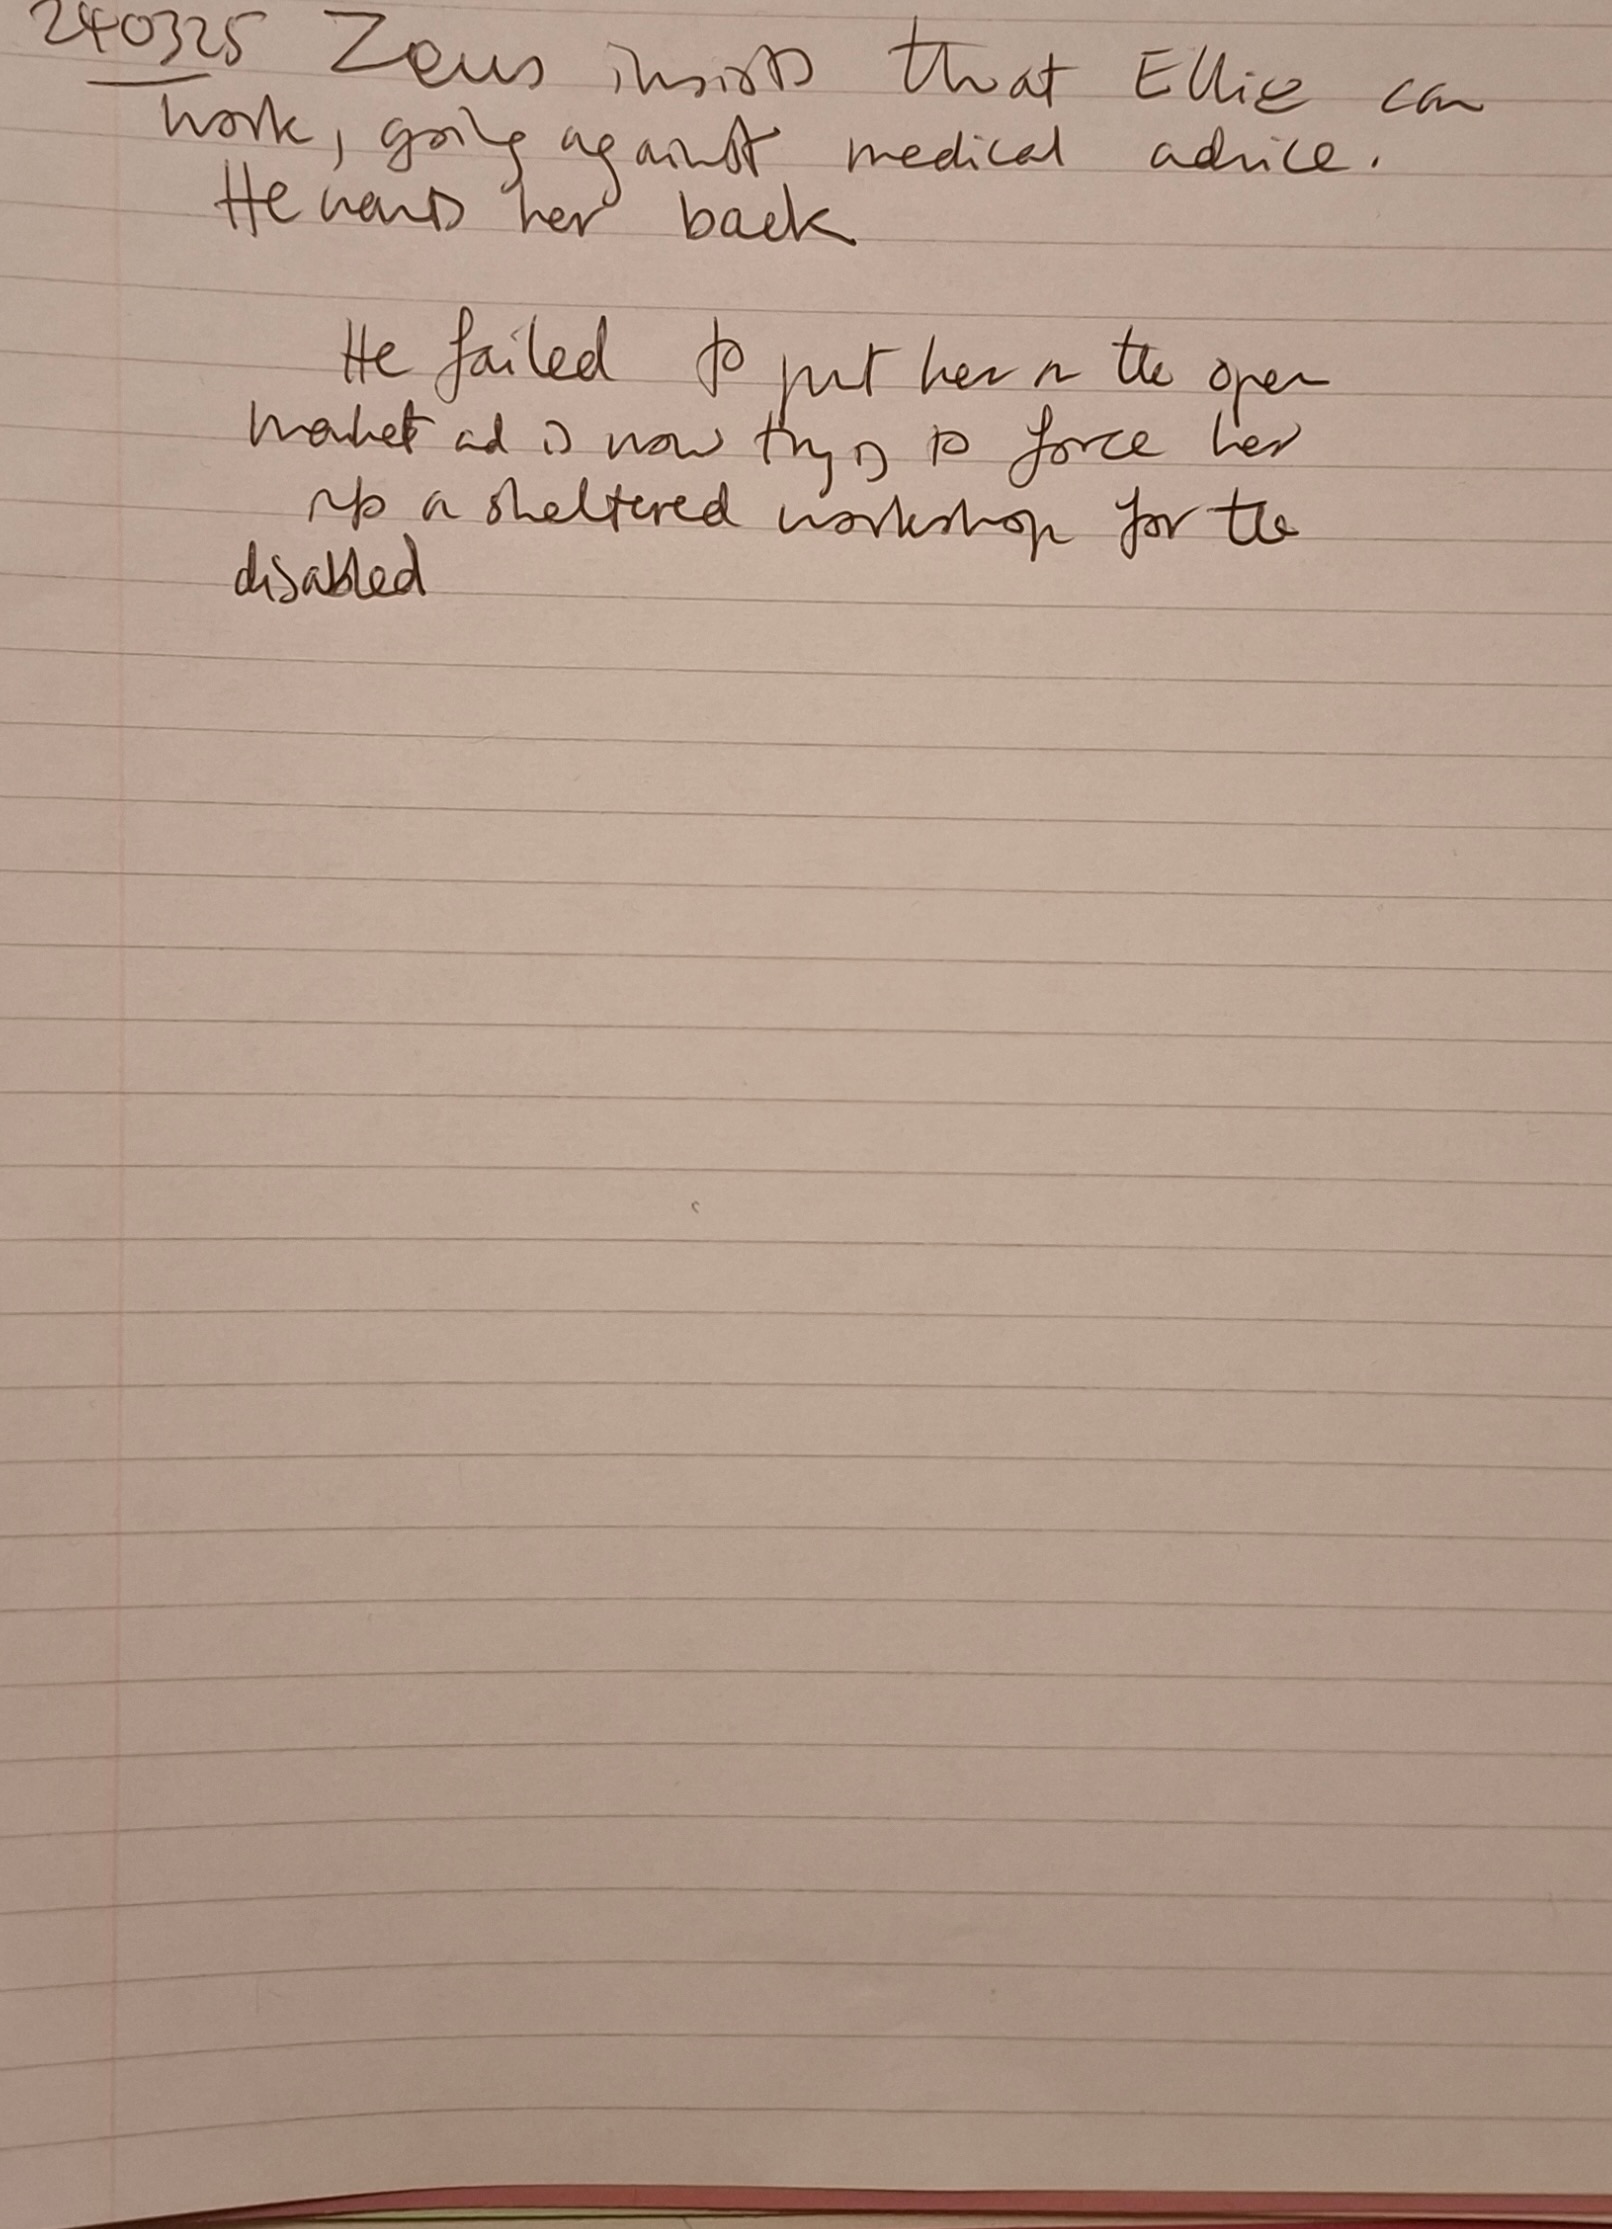 240325 Zeus insists that Ellie can
work, going against medical advice.
He wants her back
He failed to put her in the open
market and is now trying to force her
into a sheltered workshop for the
disabled